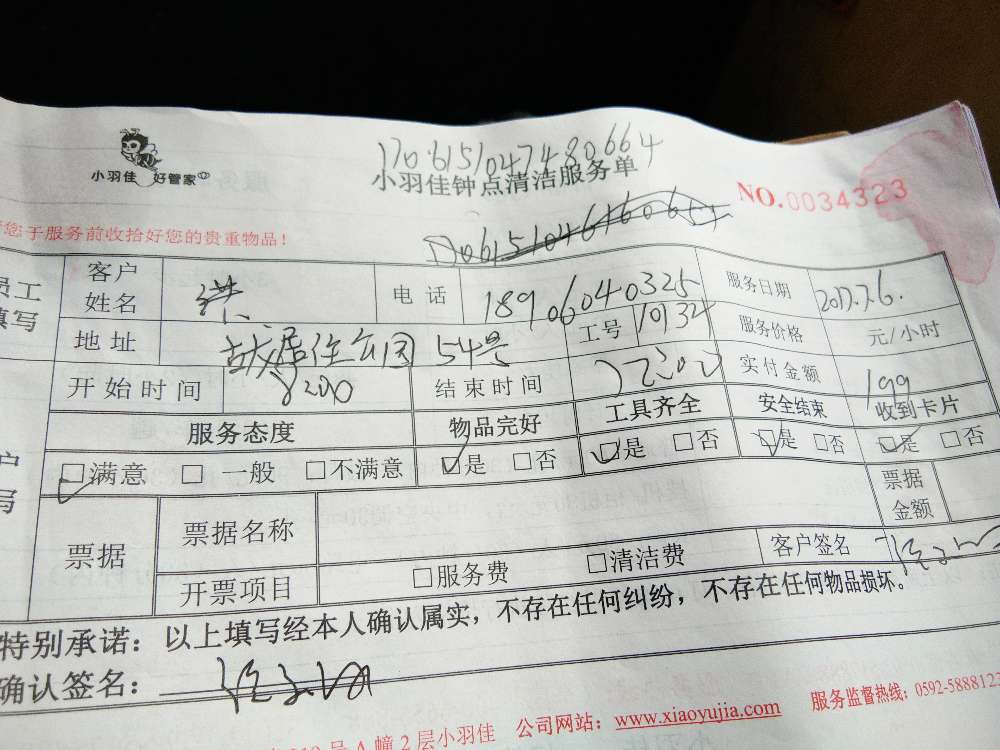 1706151047480664
小羽佳 好管家
小羽佳钟点清洁服务单
NO.0034323
您于服务前收拾好您的贵重物品！
员工
填写
客户姓名 洪 电话 18906040325 服务日期 2017.7.6.
地址 故居住公园 54号 工号 10134 服务价格 元/小时
开始时间 8:00 结束时间 12:00 实付金额 199
服务态度 物品完好 工具齐全 安全结束 收到卡片
□满意 □一般 □不满意 □是 □否 □是 □否 □是 □否 □是 □否
户
写
票据 票据名称 票据金额
开票项目 □服务费 □清洁费 客户签名
特别承诺：以上填写经本人确认属实，不存在任何纠纷，不存在任何物品损坏。
确认签名：
号A幢2层小羽佳 公司网站：www.xiaoyujia.com 服务监督热线：0592-5888123